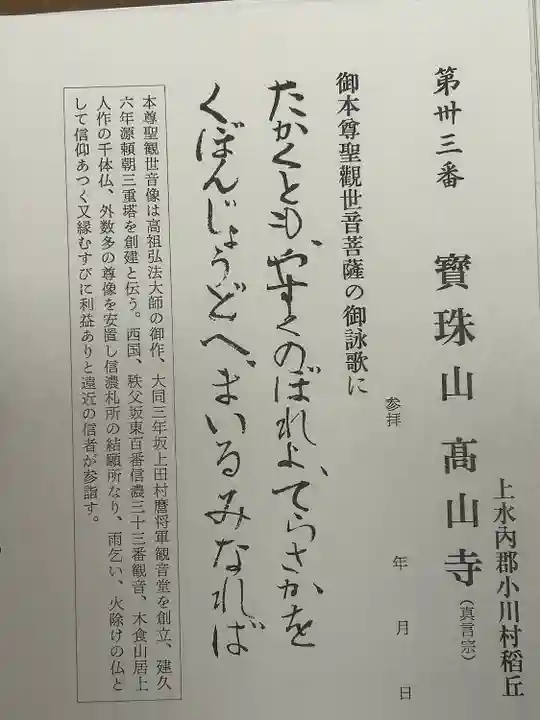 上水內郡小川村稻丘
第卅三番 寶珠山 髙山寺(真言宗)
参拝 年 月 日
御本尊聖觀世音菩薩の御詠歌に
たかくとも、やすくのぼれよ、てらさかを
くぼんじょうどへ、まいるみなれば
本尊聖観世音像は高祖弘法大師の御作、大同三年坂上田村麿将軍観音堂を創立、建久
六年源頼朝三重塔を創建と伝う。西国、秩父坂東百番信濃三十三番観音、木食山居上
人作の千体仏、外数多の尊像を安置し信濃札所の結願所なり、雨乞い、火除けの仏と
して信仰あつく又縁むすびに利益ありと遠近の信者が参詣す。